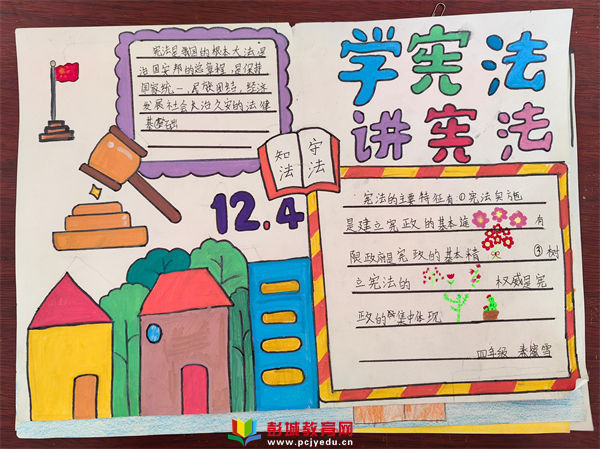 学宪法
讲宪法
宪法是我国的根本大法是
治国安邦的总章程,是保持
国家统一、民族团结、经济
发展社会长治久安的法律
基础
知法
守法
12.4
宪法的主要特征有①宪法实施
是建立宪政的基本途
有
限政府是宪政的基本精
③树
立宪法的
权威是宪
政的
集中体现
四年级
彭城教育网
www.pcjyedu.cn